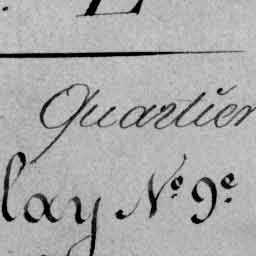 Quartier
lay N° 9e